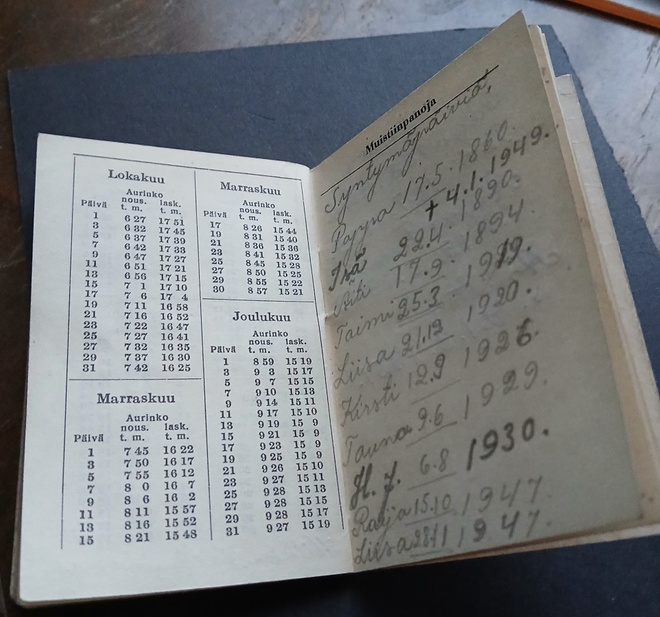 Lokakuu
Aurinko
Päivä nous. lask.
t. m. t. m.
1 6 27 17 51
3 6 32 17 45
5 6 37 17 39
7 6 42 17 33
9 6 47 17 27
11 6 51 17 21
13 6 56 17 15
15 7 1 17 10
17 7 6 17 4
19 7 11 16 58
21 7 16 16 52
23 7 22 16 47
25 7 27 16 41
27 7 32 16 35
29 7 37 16 30
31 7 42 16 25
Marraskuu
Aurinko
Päivä nous. lask.
t. m. t. m.
1 7 45 16 22
3 7 50 16 17
5 7 55 16 12
7 8 0 16 7
9 8 6 16 2
11 8 11 15 57
13 8 16 15 52
15 8 21 15 48
Marraskuu
Aurinko
Päivä nous. lask.
t. m. t. m.
17 8 26 15 44
19 8 31 15 40
21 8 36 15 36
23 8 41 15 32
25 8 45 15 28
27 8 50 15 25
29 8 55 15 22
30 8 57 15 21
Joulukuu
Aurinko
Päivä nous. lask.
t. m. t. m.
1 8 59 15 19
3 9 3 15 17
5 9 7 15 15
7 9 10 15 13
9 9 14 15 11
11 9 17 15 10
13 9 19 15 9
15 9 21 15 9
17 9 23 15 9
19 9 25 15 9
21 9 26 15 10
23 9 27 15 11
25 9 28 15 13
27 9 28 15 15
29 9 28 15 17
31 9 27 15 19
Muistiinpanoja
Syntymäpäiviä,
Pappa 17.5. 1860.
+ 4.1. 1949.
Isä 22.4. 1890.
Äiti 17.9. 1894.
Taimi 25.3. 1919.
Liisa 21.12 1920.
Kirsti 12.9 1926.
Tauno 9.6 1929.
H. J. 6.8 1930.
Raija 15.10. 1947
Liisa 28.11 1947.